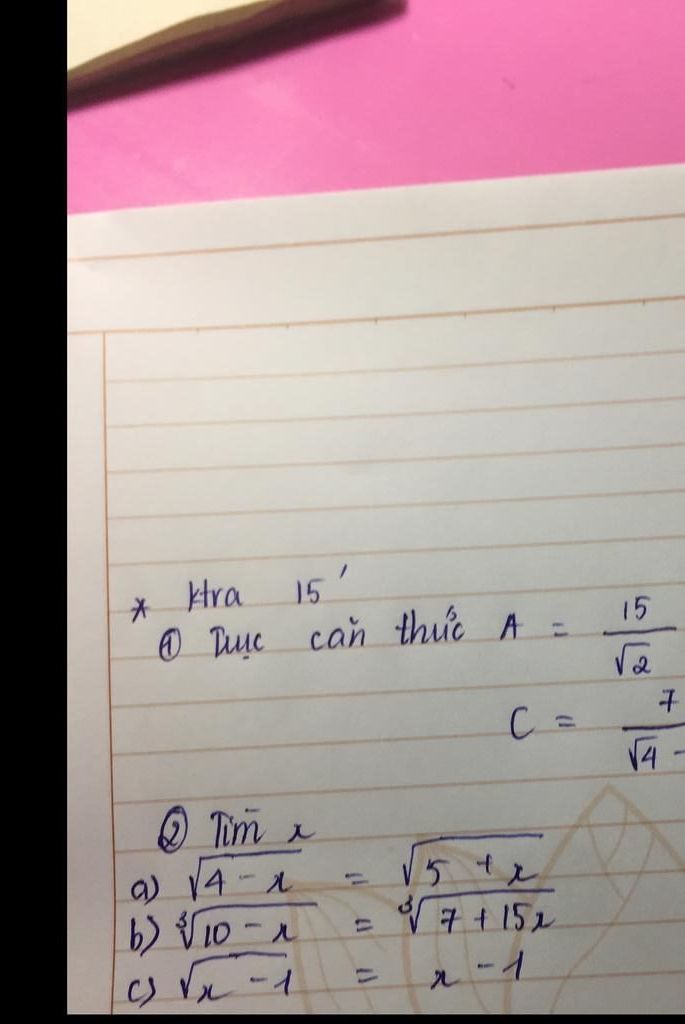 * Ktra 15'
① Trục căn thức A = 15/√2
C = 7/√4 -
② Tìm x
a) √4 - x = √5 + x
b) ∛10 - x = ∛7 + 15x
c) √x - 1 = x - 1